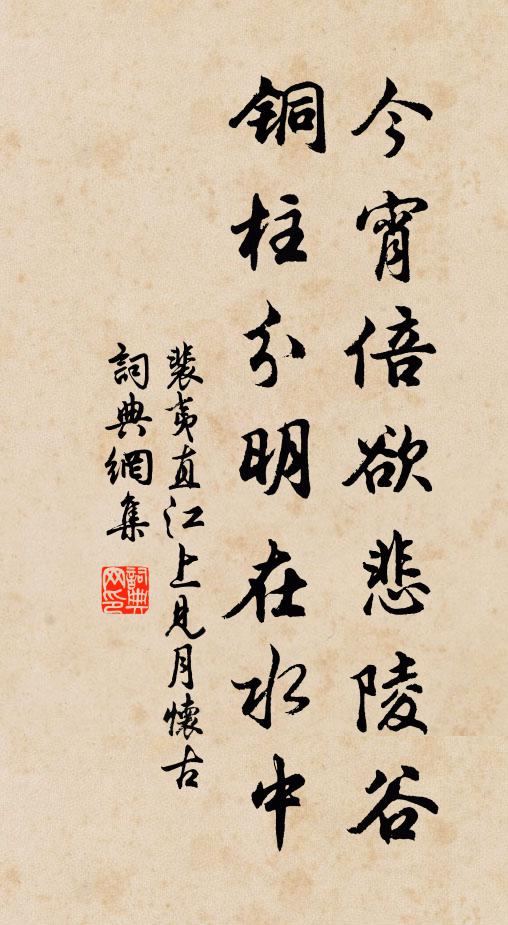 今宵倍欲悲陵谷
銅柱分明在水中
裴夷直江上見月懷古
詞典網集
詞典网印